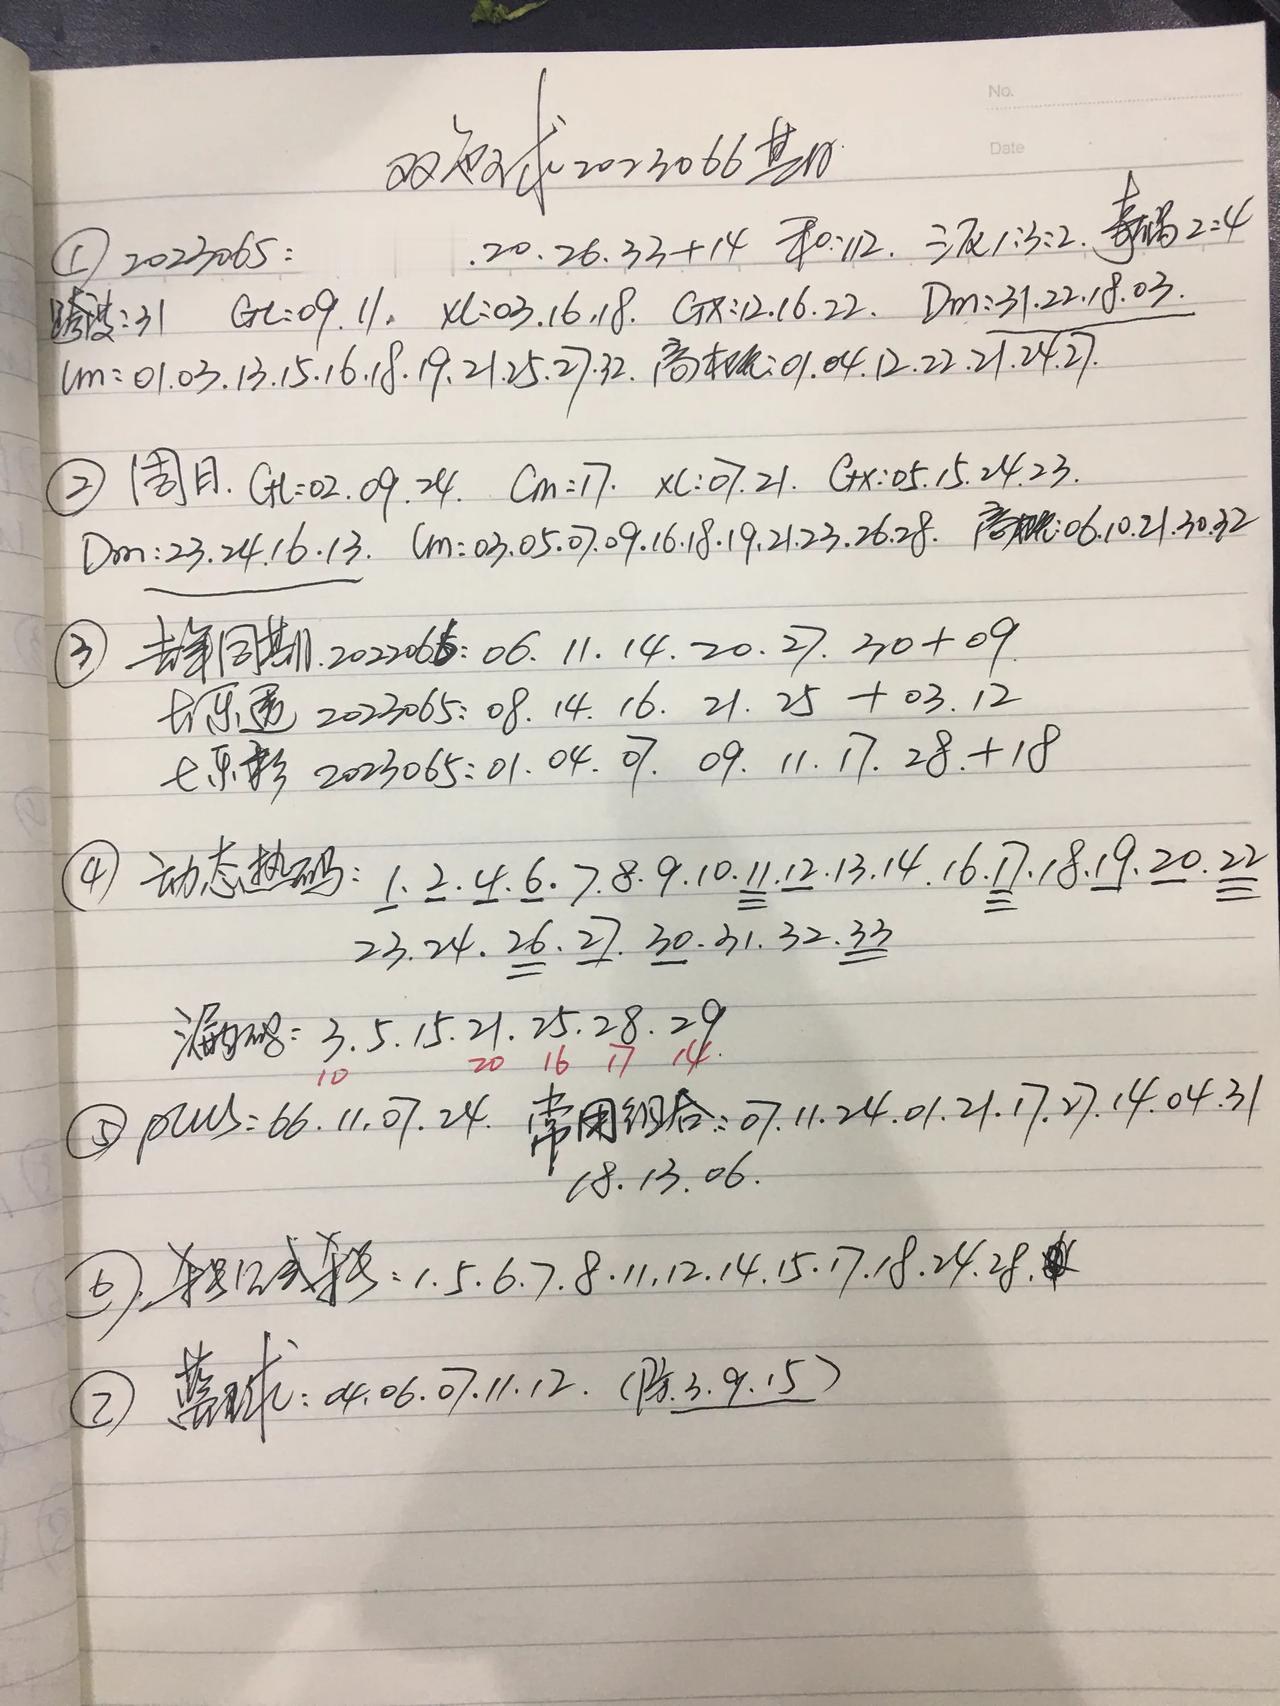 No.
Date
双色球2023066基
① 2023065: .20.26.33+14 和:112. 三区1:3:2. 奇偶2:4
跨度:31 GL:09.11. XL:03.16.18. GX:12.16.22. Dm:31.22.18.03.
Cm:01.03.13.15.16.18.19.21.25.27.32. 高概:01.04.12.22.21.24.27.
② 周日. GL:02.09.24. Cm:17. XL:07.21. GX:05.15.24.23.
Dm:23.24.16.13. Cm:03.05.07.09.16.18.19.21.23.26.28. 高概:06.10.21.30.32
③ 去年同期.2022066: 06.11.14.20.27.30+09
七乐透 2023065: 08.14.16.21.25+03.12
七乐彩 2023065: 01.04.07.09.11.17.28.+18
④ 动态热码: 1.2.4.6.7.8.9.10.11.12.13.14.16.17.18.19.20.22
23.24.26.27.30.31.32.33
漏码: 3.5.15.21.25.28.29
10 20 16 17 14
⑤ plus: 66.11.07.24. 常用组合: 07.11.24.01.21.17.27.14.04.31
18.13.06.
⑥. 杀号公式杀号: 1.5.6.7.8.11.12.14.15.17.18.24.28.
⑦ 蓝球: 04.06.07.11.12. (防.3.9.15)